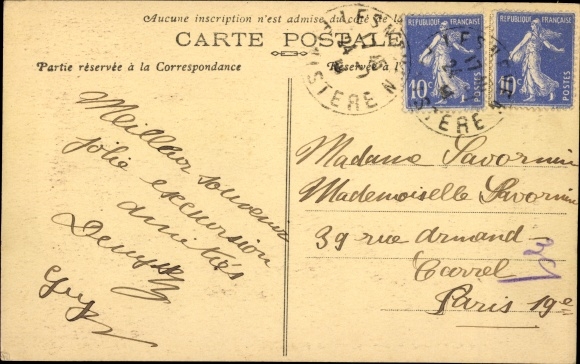 Aucune inscription n'est admise du côté de la
CARTE POSTALE
Partie réservée à la Correspondance
Réservée à l
REPUBLIQUE FRANÇAISE
10c
POSTES
REPUBLIQUE FRANÇAISE
10c
POSTES
FINISTERE
Meilleur souvenir
jolie excursion
amitiés
Madame Savornin
Mademoiselle Savornin
39 rue Armand
Carrel
Paris 19e